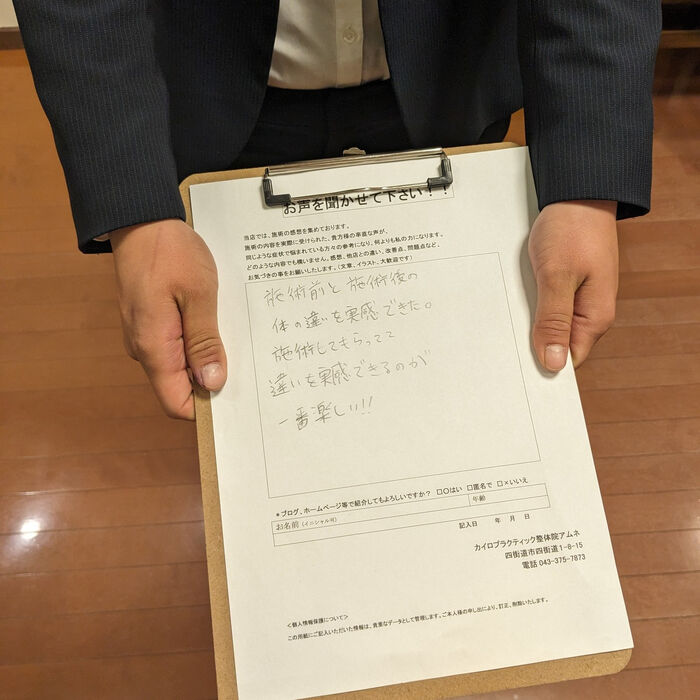 お声を聞かせて下さい！！
当店では、施術の感想を集めております。
施術の内容を実際に受けられた、貴方様の率直な声が、
同じような症状で悩まれている方々の参考になり、何よりも私の力になります。
どのような内容でも構いません。感想、他店との違い、改善点、問題点など、
お気づきの事をお願いしたします。（文章、イラスト、大歓迎です）
施術前と施術後の
体の違いを実感できた。
施術してもらってて
違いを実感できるのが
一番楽しい!!
＊ブログ、ホームページ等で紹介してもよろしいですか？ □○はい □匿名で □×いいえ
お名前（イニシャル可） 年齢
記入日 年 月 日
カイロプラクティック整体院アムネ
四街道市四街道1-8-15
電話 043-375-7873
＜個人情報保護について＞
この用紙にご記入いただいた情報は、貴重なデータとして管理します。ご本人様の申し出により、訂正、削除いたします。